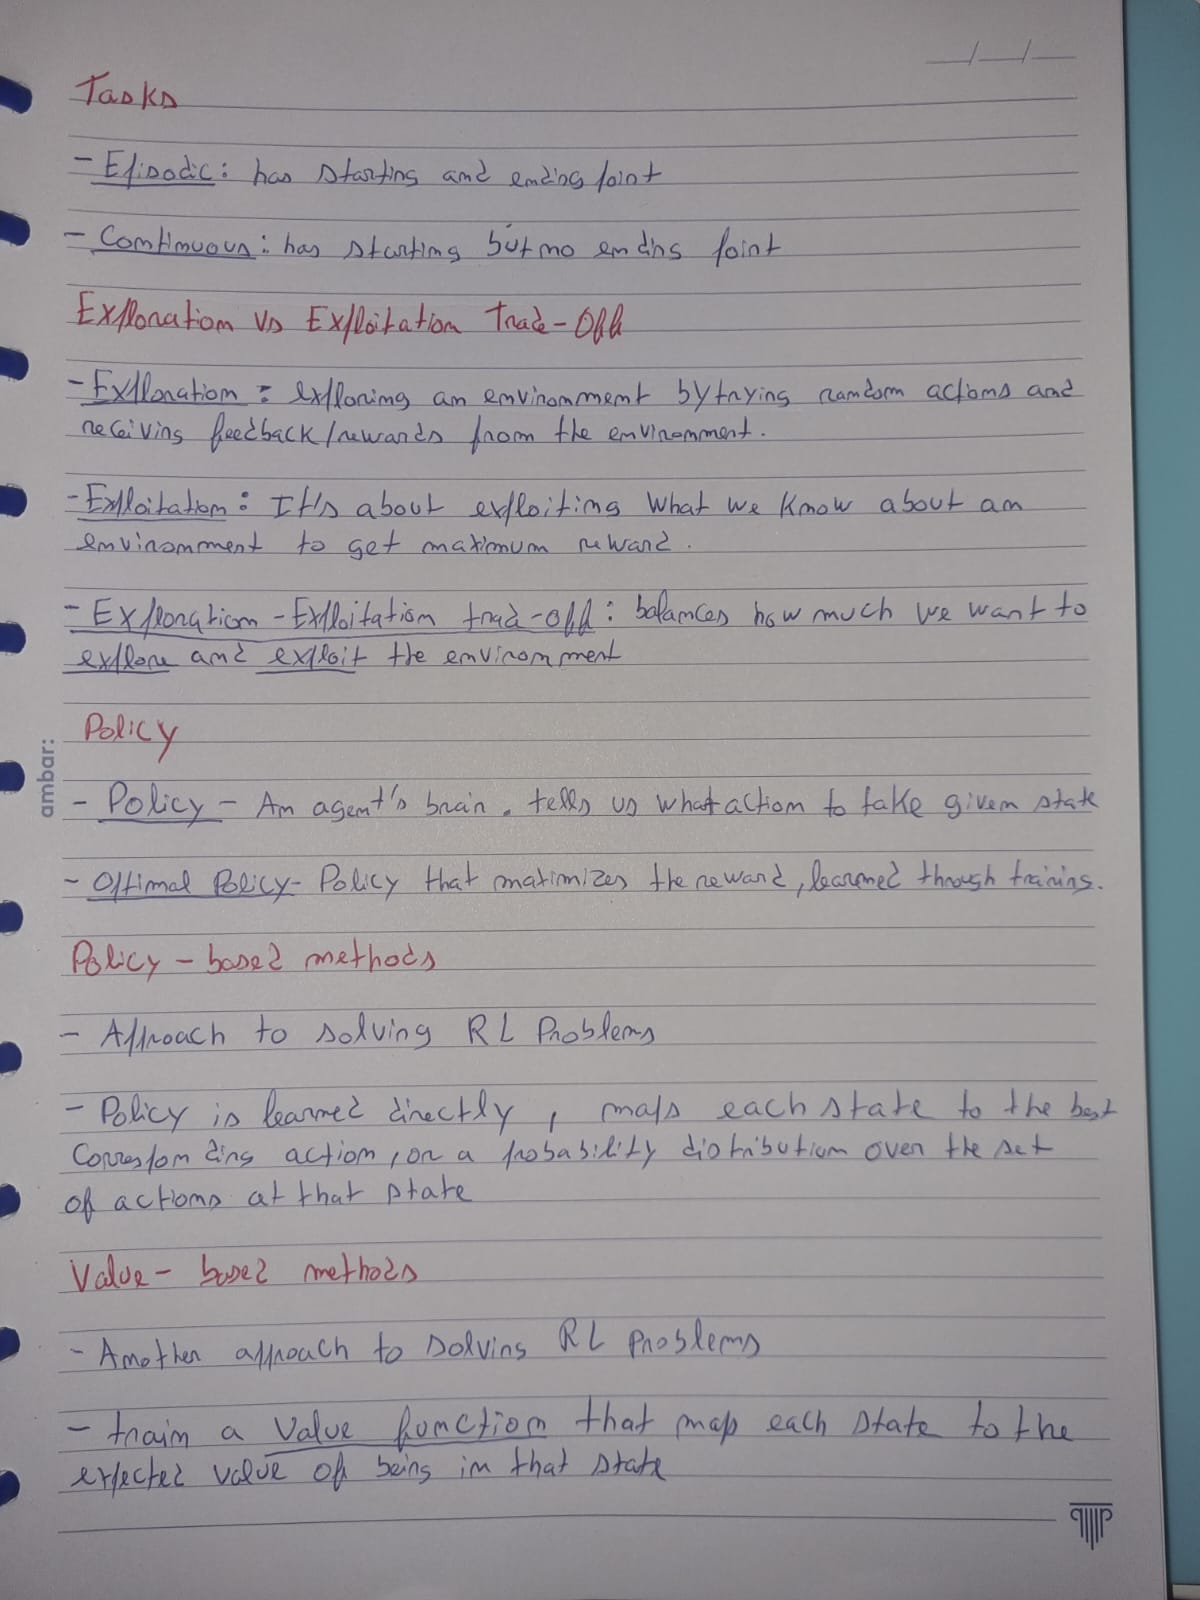 Tasks
- Episodic: has starting and ending point
- Continuous: has starting but no ending point
Exploration vs Exploitation Trade-Off
- Exploration: exploring an environment by trying random actions and
receiving feedback/rewards from the environment.
- Exploitation: It's about exploiting what we know about an
environment to get maximum reward.
- Exploration-Exploitation trade-off: balances how much we want to
explore and exploit the environment
Policy
ambar:
- Policy - An agent's brain. tells us what action to take given state
- Optimal Policy - Policy that maximizes the reward, learned through training.
Policy-based methods
- Approach to solving RL Problems
- Policy is learned directly, maps each state to the best
corresponding action, or a probability distribution over the set
of actions at that state
Value-based methods
- Another approach to solving RL problems
- train a value function that map each state to the
expected value of being in that state